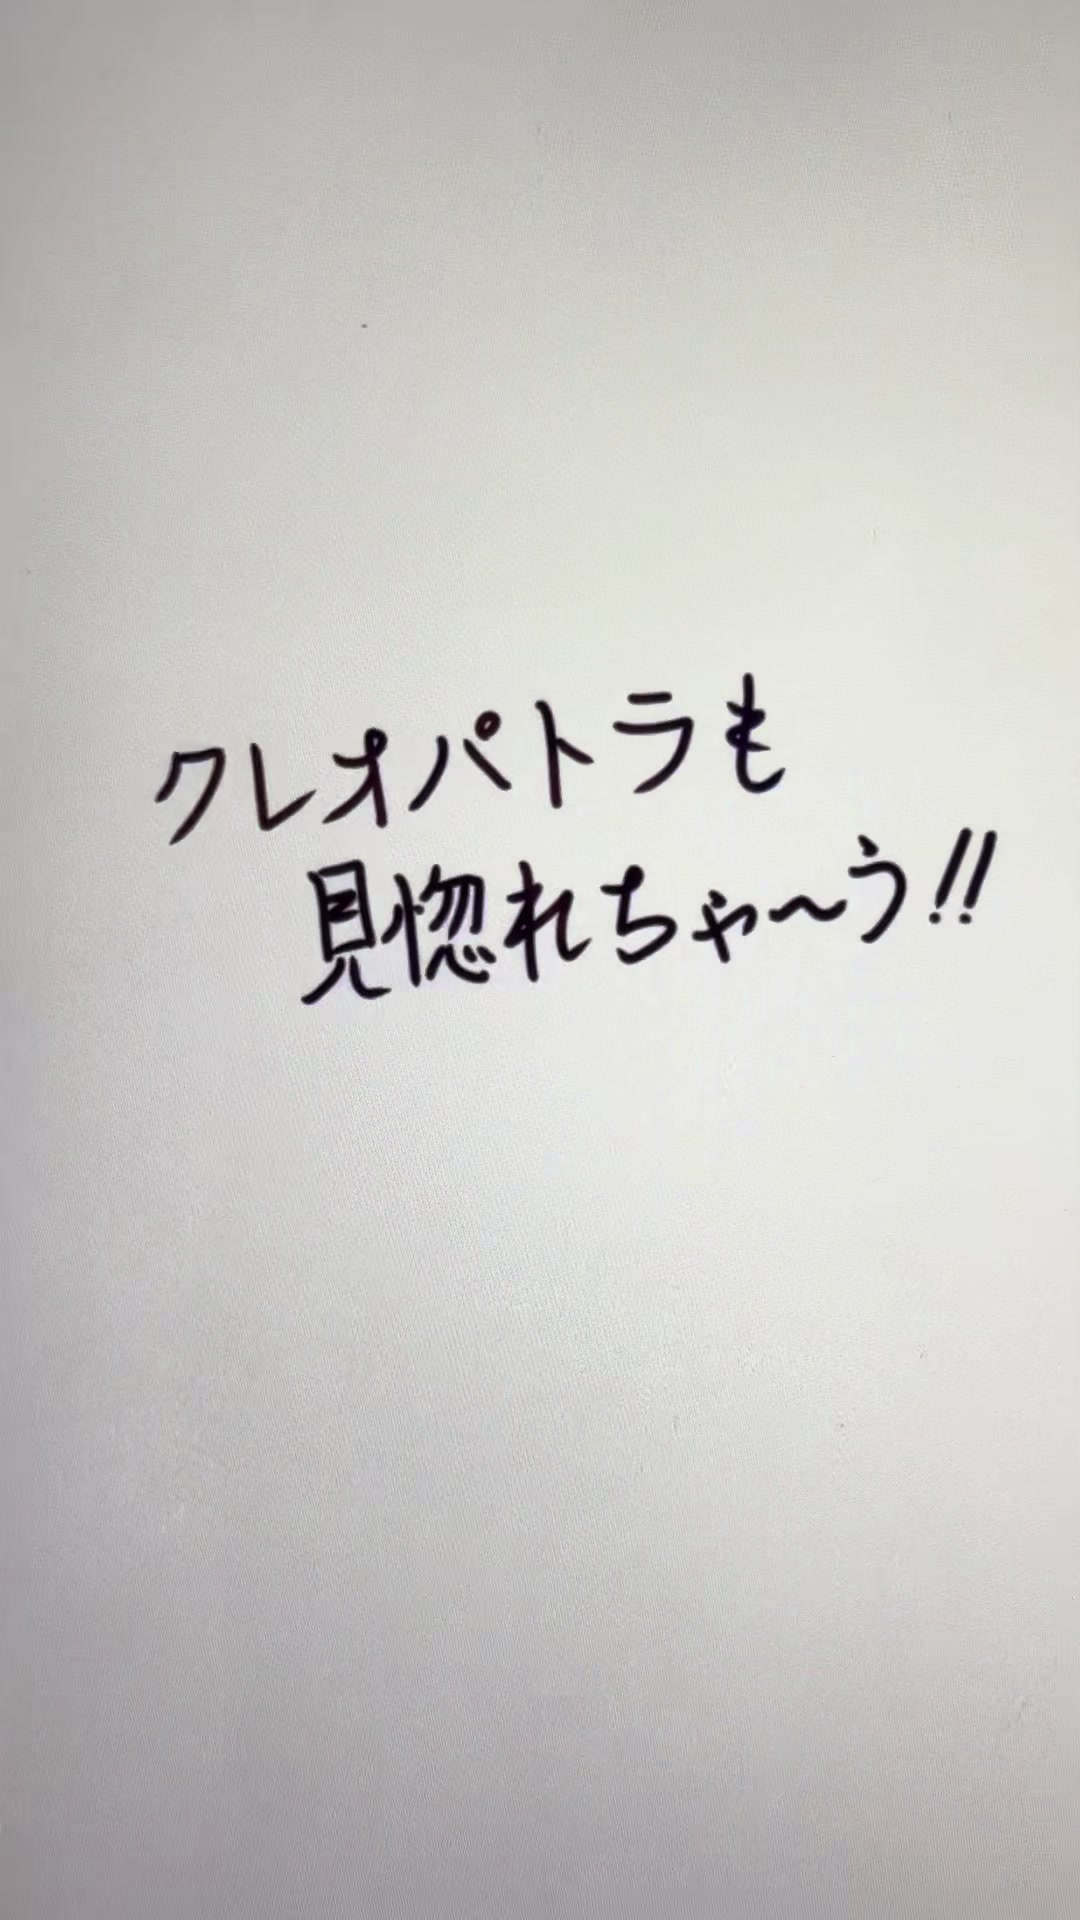 クレオパトラも
見惚れちゃ〜う!!